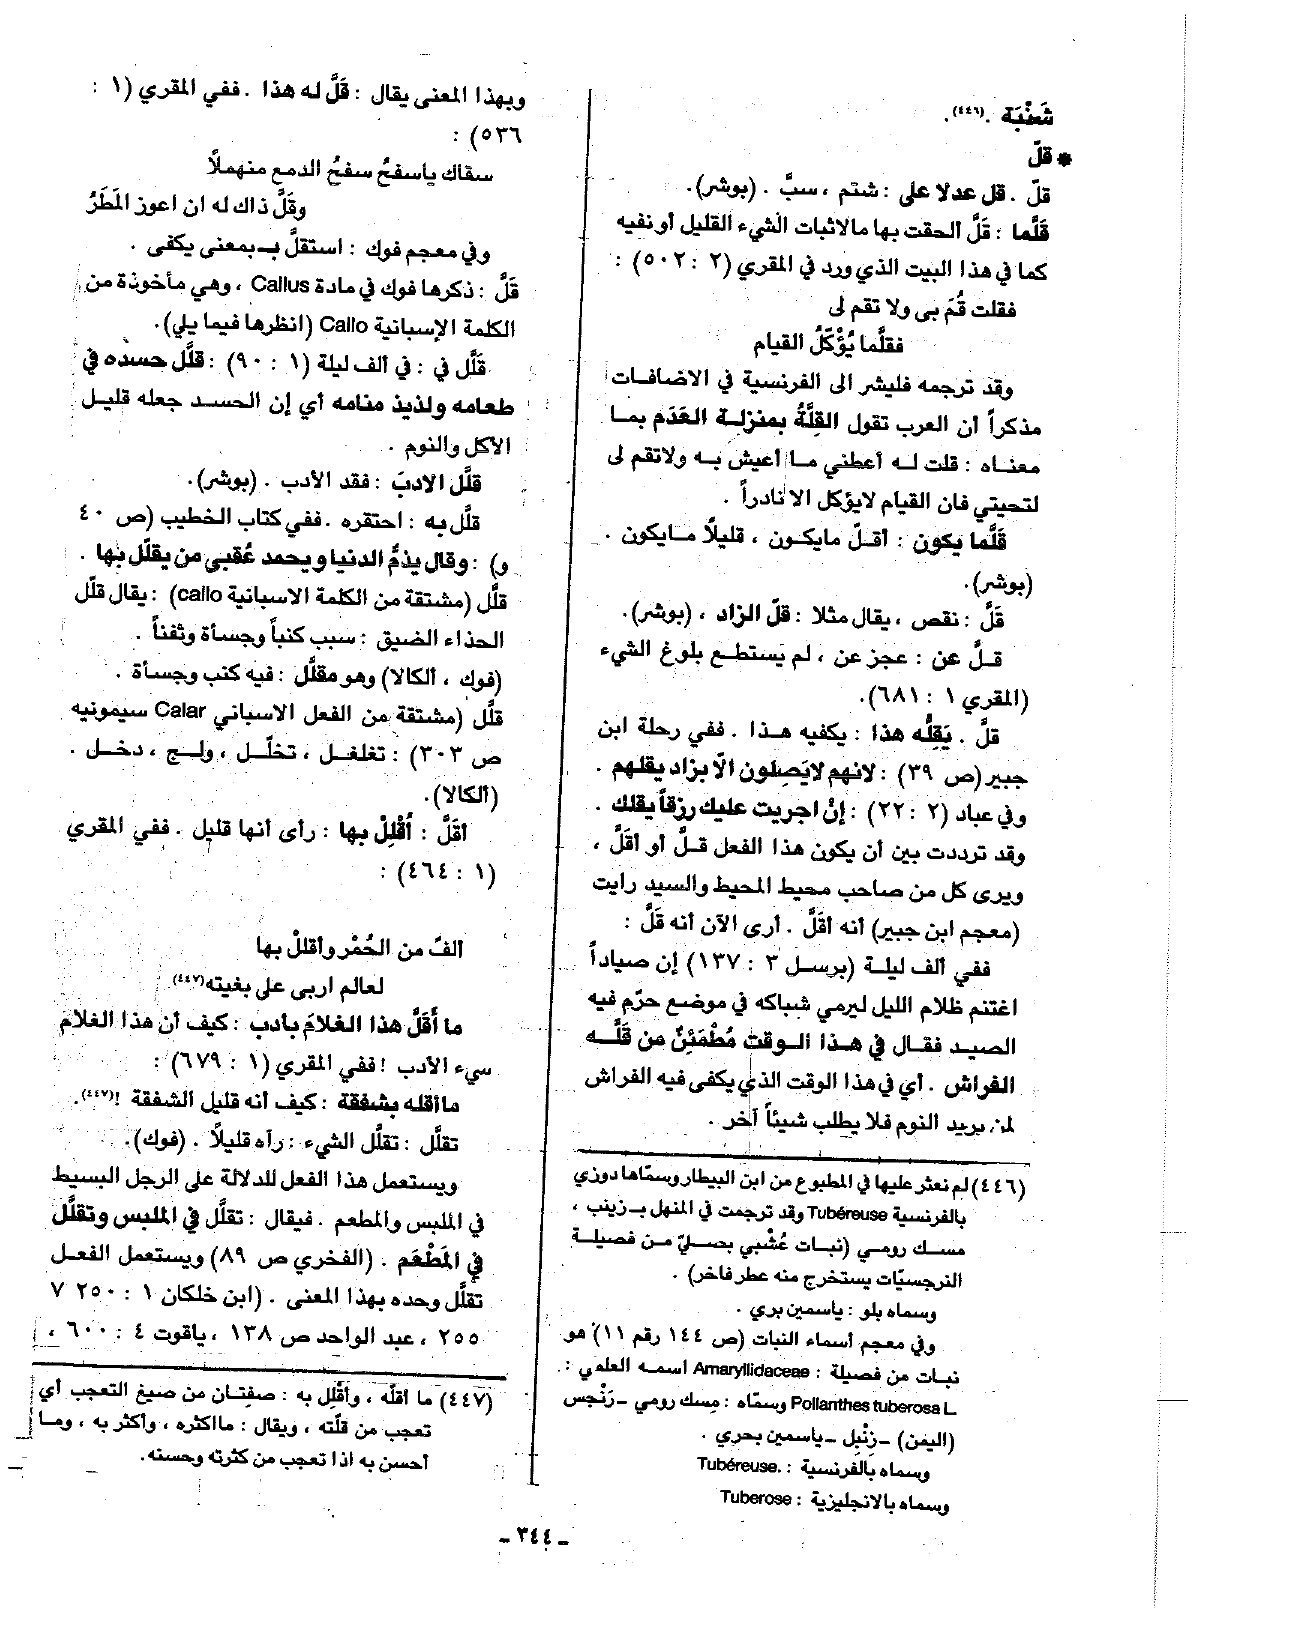 شَعْنْبَة . (٤٤٦).
* قلّ
قلّ . قل عدلا على : شتم ، سبَّ . (بوشر).
قَلَّما : قَلَّ ألحقت بها ما لاثبات الشيء القليل أو نفيه
كما في هذا البيت الذي ورد في المقري (٢ : ٥٠٢) :
فقلت قُمَ بى ولا تقم لى
فقلَّما يُؤْكَلُ القيام
وقد ترجمه فليشر الى الفرنسية في الاضافات
مذكراً أن العرب تقول القِلَّةُ بمنزلة العَدَم بما
معناه : قلت له أعطني ما أعيش به ولاتقم لى
لتحيتي فان القيام لايؤكل الا نادراً .
قَلَّما يكون : أقلّ مايكون ، قليلاً مايكون .
(بوشر).
قَلَّ : نقص ، يقال مثلا : قلّ الزاد ، (بوشر).
قلَّ عن : عجز عن ، لم يستطع بلوغ الشيء
(المقري ١ : ٦٨١).
قلَّ . يَقِلُّه هذا : يكفيه هذا . ففي رحلة ابن
جبير (ص ٣٩) : لانهم لايَصِلون الّا بزاد يقلهم .
وفي عباد (٢ : ٢٢) : إنْ اجريت عليك رزقاً يقلك .
وقد ترددت بين أن يكون هذا الفعل قلَّ أو أقلَّ ،
ويرى كل من صاحب محيط المحيط والسيد رايت
(معجم ابن جبير) أنه أقَلَّ . أرى الآن أنه قَلَّ :
ففي ألف ليلة (برسل ٣ : ١٣٧) إن صياداً
اغتنم ظلام الليل ليرمي شباكه في موضع حرّم فيه
الصيد فقال في هذا الوقت مُطْمَئِنٌ من قَلَّه
الفراش . أي في هذا الوقت الذي يكفى فيه الفراش
لمن يريد النوم فلا يطلب شيئاً آخر .
(٤٤٦) لم نعثر عليها في المطبوع من ابن البيطار وسمّاها دوزي
بالفرنسية Tubéreuse وقد ترجمت في المنهل بـ زينب ،
مسك رومي (نبات عُشْبي بصليّ من فصيلة
النرجسيّات يستخرج منه عطر فاخر) .
وسماه بلو : ياسمين بري .
وفي معجم أسماء النبات (ص ١٤٤ رقم ١١) هو
نبات من فصيلة : Amaryllidaceae اسمه العلمي :
Pollanthes tuberosa L وسمّاه : مِسك رومي - رَنْجس
(اليمن) - زنْبِل - ياسمين بحري .
وسماه بالفرنسية : Tubéreuse.
وسماه بالانجليزية : Tuberose
وبهذا المعنى يقال : قَلَّ له هذا . ففي المقري (١ :
٥٣٦) :
سقاك ياسفحُ سفحُ الدمع منهملاً
وقَلَّ ذاك له ان اعوز المَطَرُ
وفي معجم فوك : استقلَّ بـ بمعنى يكفى .
قَلَّ : ذكرها فوك في مادة Callus ، وهي مأخوذة من
الكلمة الإسبانية Callo (انظرها فيما يلي).
قَلَّل في : في ألف ليلة (١ : ٩٠) : قلَّل حسده في
طعامه ولذيذ منامه أي إن الحسد جعله قليل
الأكل والنوم .
قلَّل الادبَ : فقد الأدب . (بوشر).
قلَّل به : احتقره . ففي كتاب الخطيب (ص ٤٠
و) : وقال يذمُّ الدنيا ويحمد عُقبي من يقلّل بها .
قلَّل (مشتقة من الكلمة الاسبانية callo) : يقال قلّل
الحذاء الضيق : سبب كنباً وجسأة وثفناً .
(فوك ، ألكالا) وهو مقلَّل : فيه كنب وجسأة .
قلَّل (مشتقة من الفعل الاسباني Calar سيمونيه
ص ٣٠٣) : تغلغل ، تخلّل ، ولج ، دخل .
(ألكالا).
أقَلَّ : أُقْلِلْ بها : رأى أنها قليل . ففي المقري
(١ : ٤٦٤) :
ألفّ من الحُمْر وأقلِلْ بها
لعالم اربى على بغيته(٤٤٧)
ما أَقَلَّ هذا الغلامَ بأدب : كيف أن هذا الغلام
سيء الأدب ! ففي المقري (١ : ٦٧٩) :
ما أقله بشفقة : كيف أنه قليل الشفقة !(٤٤٧).
تقلَّل : تقلَّل الشيء : رآه قليلاً . (فوك).
ويستعمل هذا الفعل للدلالة على الرجل البسيط
في الملبس والمطعم . فيقال : تقلَّل في الملبس وتقلَّل
في المَطْعَم . (الفخري ص ٨٩) ويستعمل الفعل
تقلَّل وحده بهذا المعنى . (ابن خلكان ١ : ٢٥٠ ٧
٢٥٥ ، عبد الواحد ص ١٣٨ ، ياقوت ٤ : ٦٠٠ ،
(٤٤٧) ما أقلّه ، وأقْلِل به : صفتان من صيغ التعجب أي
تعجب من قلّته ، ويقال : ما اكثره ، وأكثر به ، وما
أحسن به اذا تعجب من كثرته وحسنه.
- ٣٤٤ -